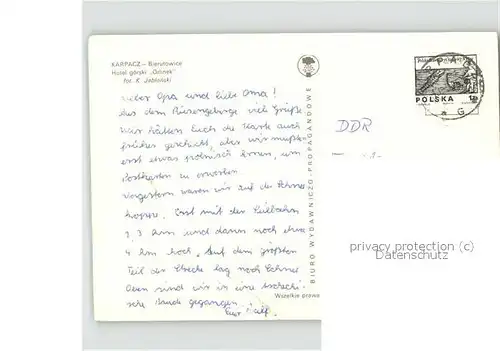 KARPACZ – Bierutowice
Hotel górski „Orlinek"
fot. K. Jabłoński
Lieber Opa und liebe Oma!
Aus dem Riesengebirge viel Grüße
Wir hätten Euch die Karte auch
früher geschickt, aber wir mußten
erst etwas polnisch lernen, um
Postkarten zu erwerben.
Vorgestern waren wir auf der Schnee
koppe. Erst mit der Seilbahn
2,3 km und dann noch etwa
4 km hoch. Auf dem größten
Teil der Strecke lag noch Schnee
Oben sind wir in eine tschechi
sche Baude gegangen.
Euer
BIURO WYDAWNICZO-PROPAGANDOWE
Wszelkie prawa
POLSKA
DDR
privacy protection (c)
Datenschutz